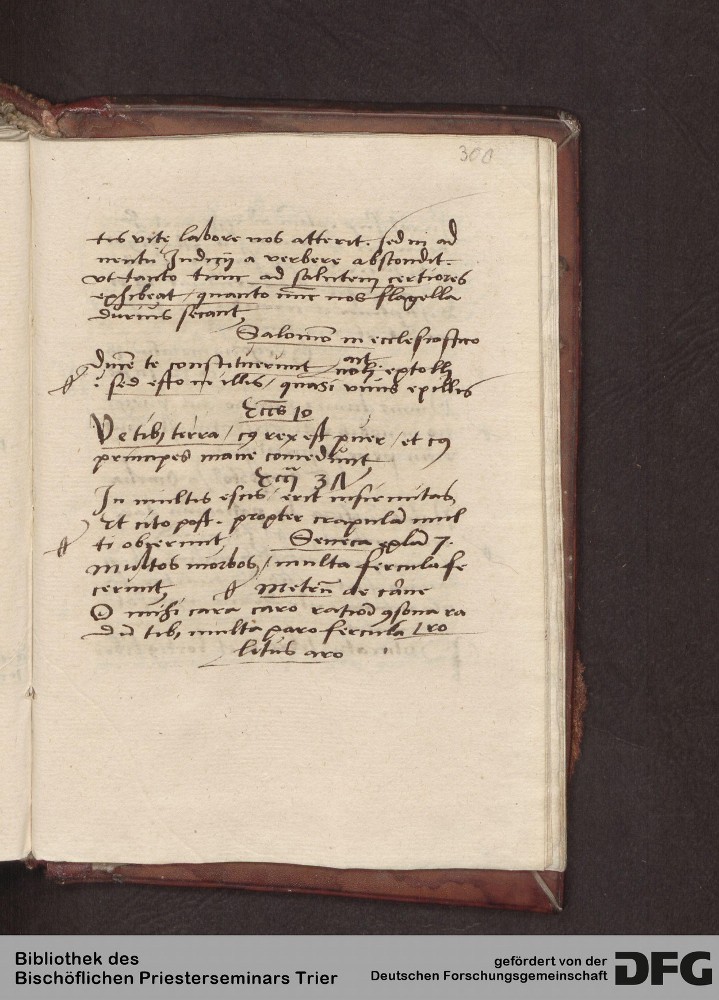 300
tis vite labore nos atterit. sed in ad
uentu Iudicij a verbere abscondit.
vt tanto tunc ad salutem certiores
exhibeat / quanto nunc nos flagella
durius secant
Salomo in ecclesiastico
ducē te constituerunt / noli extolli
sed esto in illis / quasi vnus ex illis
Eccs 10
Ve tibi terra / cuius rex est puer / et cuius
principes mane comedunt
In multis escis / erit infirmitas
Et cito post. propter crapulā mul
ti obierunt Seneca eplā 7.
multos morbos / multa fercula fe
cerunt Metrū de carne
O mihi cara caro ratiōi consona ra
tibi multa paro fercula
aro
Bibliothek des
Bischöflichen Priesterseminars Trier
gefördert von der
Deutschen Forschungsgemeinschaft DFG